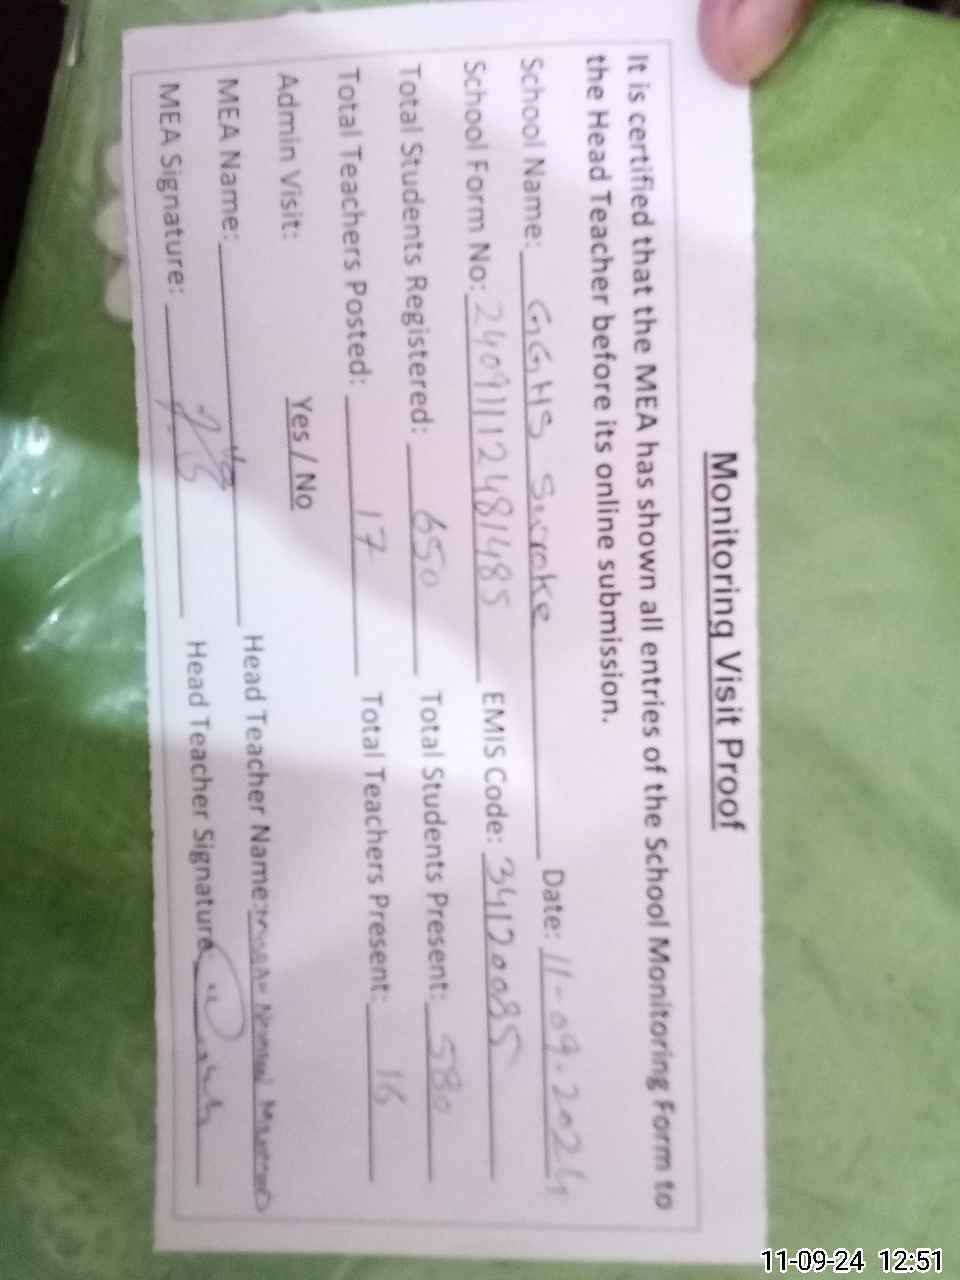 Monitoring Visit Proof
It is certified that the MEA has shown all entries of the School Monitoring Form to
the Head Teacher before its online submission.
School Name: GGHS Suroke Date: 11-09-2024
School Form No: 2409111248 1485 EMIS Code: 34120085
Total Students Registered: 650 Total Students Present: 580
Total Teachers Posted: 17 Total Teachers Present: 16
Admin Visit: Yes / No
MEA Name: Head Teacher Name:
MEA Signature: Head Teacher Signature
11-09-24 12:51